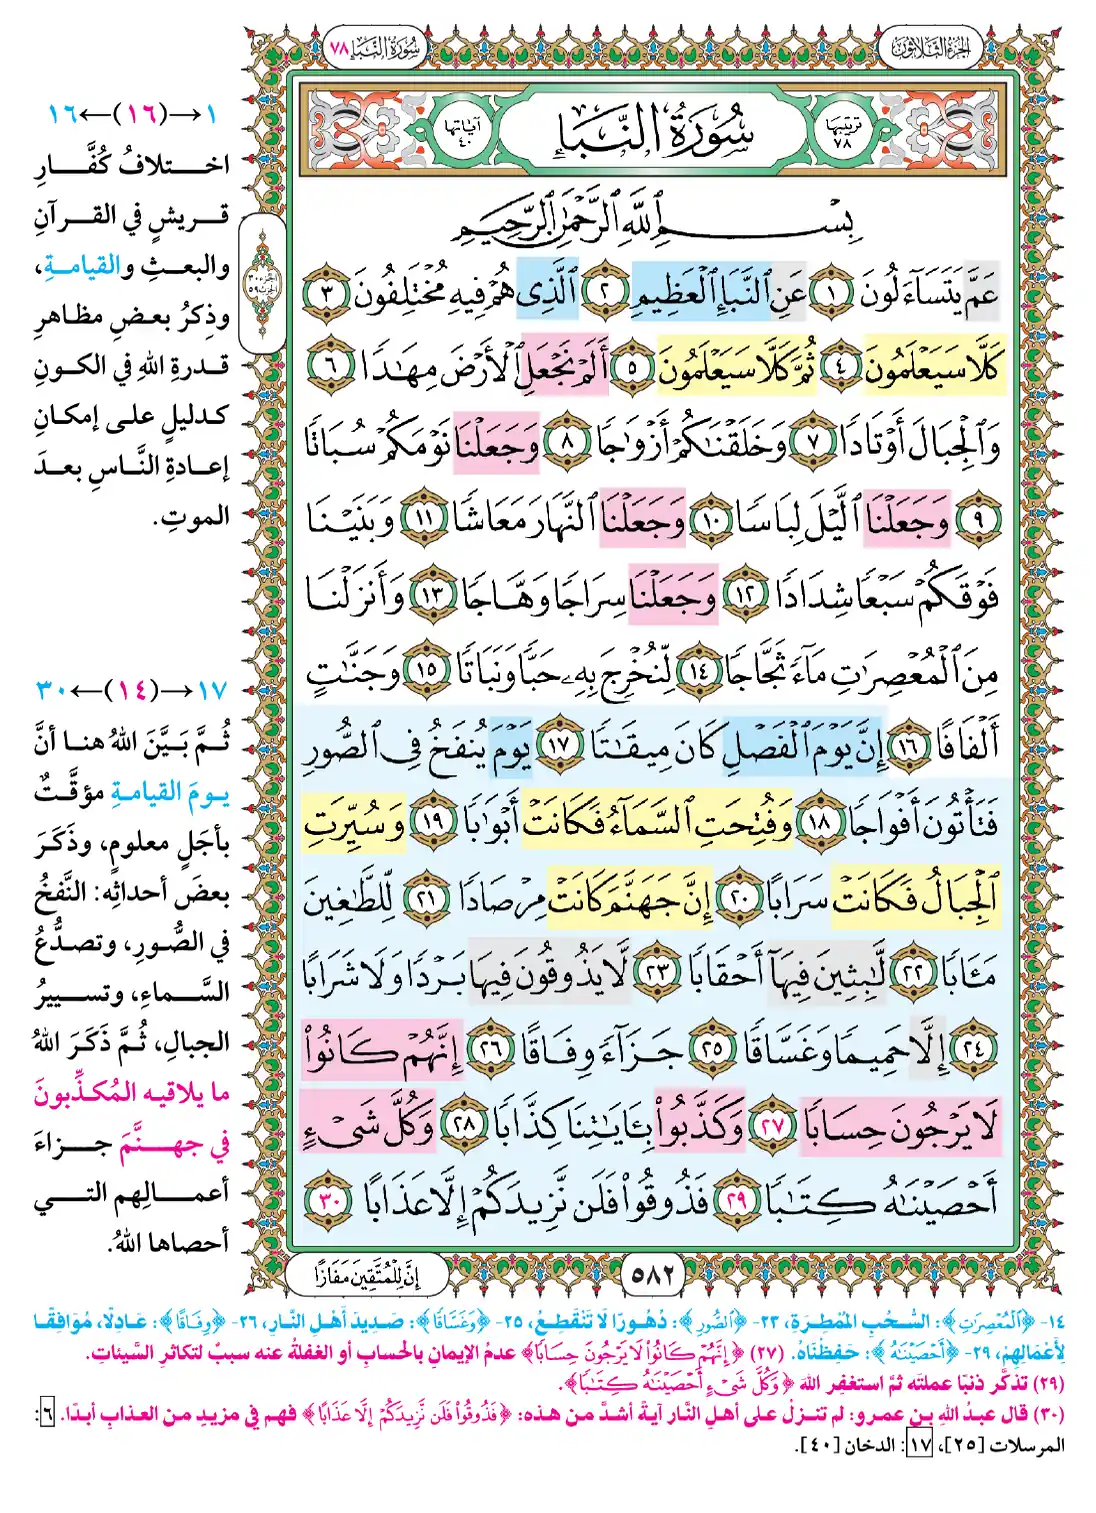 الجزء الثلاثون
سورة النبأ ٧٨
ترتيبها ٧٨
سُورَةُ النَّبَإِ
آياتها ٤٠
بِسْمِ ٱللَّهِ ٱلرَّحْمَٰنِ ٱلرَّحِيمِ
عَمَّ يَتَسَآءَلُونَ ١ عَنِ ٱلنَّبَإِ ٱلْعَظِيمِ ٢ ٱلَّذِى هُمْ فِيهِ مُخْتَلِفُونَ ٣
كَلَّا سَيَعْلَمُونَ ٤ ثُمَّ كَلَّا سَيَعْلَمُونَ ٥ أَلَمْ نَجْعَلِ ٱلْأَرْضَ مِهَٰدًا ٦
وَٱلْجِبَالَ أَوْتَادًا ٧ وَخَلَقْنَٰكُمْ أَزْوَٰجًا ٨ وَجَعَلْنَا نَوْمَكُمْ سُبَاتًا
٩ وَجَعَلْنَا ٱلَّيْلَ لِبَاسًا ١٠ وَجَعَلْنَا ٱلنَّهَارَ مَعَاشًا ١١ وَبَنَيْنَا
فَوْقَكُمْ سَبْعًا شِدَادًا ١٢ وَجَعَلْنَا سِرَاجًا وَهَّاجًا ١٣ وَأَنزَلْنَا
مِنَ ٱلْمُعْصِرَٰتِ مَآءً ثَجَّاجًا ١٤ لِّنُخْرِجَ بِهِۦ حَبًّا وَنَبَاتًا ١٥ وَجَنَّٰتٍ
أَلْفَافًا ١٦ إِنَّ يَوْمَ ٱلْفَصْلِ كَانَ مِيقَٰتًا ١٧ يَوْمَ يُنفَخُ فِى ٱلصُّورِ
فَتَأْتُونَ أَفْوَاجًا ١٨ وَفُتِحَتِ ٱلسَّمَآءُ فَكَانَتْ أَبْوَٰبًا ١٩ وَسُيِّرَتِ
ٱلْجِبَالُ فَكَانَتْ سَرَابًا ٢٠ إِنَّ جَهَنَّمَ كَانَتْ مِرْصَادًا ٢١ لِّلطَّٰغِينَ
مَـَٔابًا ٢٢ لَّٰبِثِينَ فِيهَآ أَحْقَابًا ٢٣ لَّا يَذُوقُونَ فِيهَا بَرْدًا وَلَا شَرَابًا
٢٤ إِلَّا حَمِيمًا وَغَسَّاقًا ٢٥ جَزَآءً وِفَاقًا ٢٦ إِنَّهُمْ كَانُوا۟
لَا يَرْجُونَ حِسَابًا ٢٧ وَكَذَّبُوا۟ بِـَٔايَٰتِنَا كِذَّابًا ٢٨ وَكُلَّ شَىْءٍ
أَحْصَيْنَٰهُ كِتَٰبًا ٢٩ فَذُوقُوا۟ فَلَن نَّزِيدَكُمْ إِلَّا عَذَابًا ٣٠
٥٨٢
إِنَّ لِلْمُتَّقِينَ مَفَازًا
١→(١٦)←١٦
اختلافُ كُفَّارِ
قريشٍ في القرآنِ
والبعثِ والقيامةِ،
وذِكرُ بعضِ مظاهرِ
قدرةِ اللهِ في الكونِ
كدليلٍ على إمكانِ
إعادةِ النَّاسِ بعدَ
الموتِ.
١٧→(١٤)←٣٠
ثُمَّ بَيَّنَ اللهُ هنا أنَّ
يومَ القيامةِ مؤقَّتٌ
بأجَلٍ معلومٍ، وذَكَرَ
بعضَ أحداثِه: النَّفخُ
في الصُّورِ، وتصدُّعُ
السَّماءِ، وتسييرُ
الجبالِ، ثُمَّ ذَكَرَ اللهُ
ما يلاقيه المُكذِّبونَ
في جهنَّمَ جزاءَ
أعمالِهم التي
أحصاها اللهُ.
١٤- ﴿ٱلْمُعْصِرَٰتِ﴾: السُّحُبِ المُمْطِرَةِ، ٢٣- ﴿ٱلصُّورِ﴾: دُهُورًا لَا تَنْقَطِعُ، ٢٥- ﴿وَغَسَّاقًا﴾: صَدِيدَ أَهْلِ النَّارِ، ٢٦- ﴿وِفَاقًا﴾: عَادِلًا، مُوَافِقًا
لِأَعْمَالِهِمْ، ٢٩- ﴿أَحْصَيْنَٰهُ﴾: حَفِظْنَاهُ. (٢٧) ﴿إِنَّهُمْ كَانُوا۟ لَا يَرْجُونَ حِسَابًا﴾ عدمُ الإيمانِ بالحسابِ أو الغفلةُ عنه سببٌ لتكاثرِ السَّيئاتِ.
(٢٩) تذكَّر ذنبًا عملتَه ثمَّ استغفِر اللهَ ﴿وَكُلَّ شَىْءٍ أَحْصَيْنَٰهُ كِتَٰبًا﴾.
(٣٠) قال عبدُ اللهِ بن عمرو: لم تنزلْ على أهلِ النَّار آيةٌ أشدُّ من هذه: ﴿فَذُوقُوا۟ فَلَن نَّزِيدَكُمْ إِلَّا عَذَابًا﴾ فهم في مزيدٍ من العذابِ أبدًا. ٦:
المرسلات [٢٥]، ١٧: الدخان [٤٠].